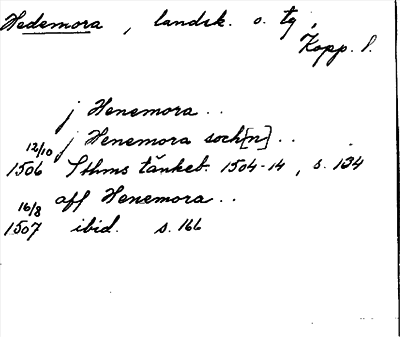 Hedemora, landsk. o. tg,
Kopp. l.
j Henemora..
j Henemora soch[n]..
12/10 1506 Sthms tänkeb. 1504-14, s. 134
aff Henemora..
16/8 1507 ibid. s. 166